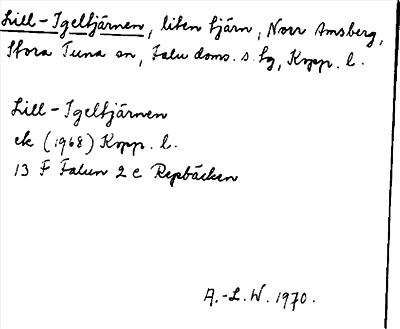 Lill-Igeltjärnen, liten tjärn, Norr Amsberg,
Stora Tuna sn, Falu doms. s. lg, Kopp. l.
Lill-Igeltjärnen
ek (1968) Kopp. l.
13 F Falun 2 c Repbäcken
A.-L. W. 1970.